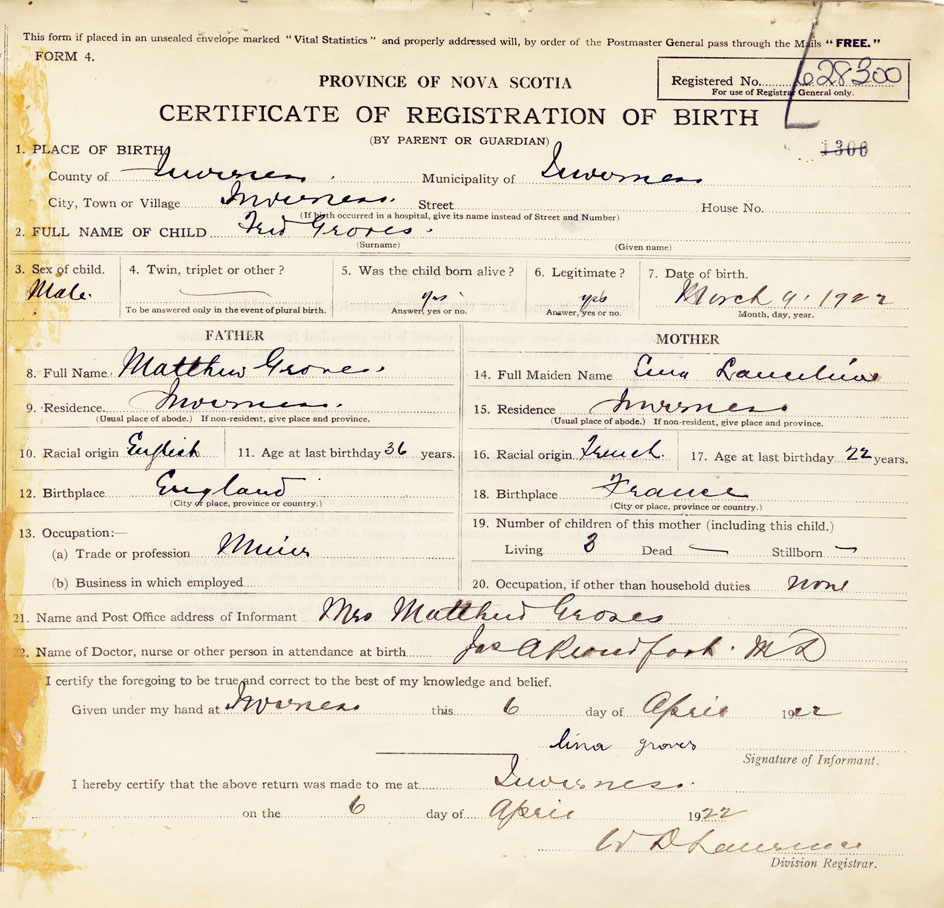 This form if placed in an unsealed envelope marked "Vital Statistics" and properly addressed will, by order of the Postmaster General pass through the Mails "FREE."
FORM 4.
Registered No. 628300
For use of Registrar General only.
PROVINCE OF NOVA SCOTIA
CERTIFICATE OF REGISTRATION OF BIRTH
(BY PARENT OR GUARDIAN)
1300
1. PLACE OF BIRTH
County of Inverness. Municipality of Inverness
City, Town or Village Inverness. Street House No.
(If birth occurred in a hospital, give its name instead of Street and Number)
2. FULL NAME OF CHILD Fred Groves.
(Surname) (Given name)
3. Sex of child. 4. Twin, triplet or other? 5. Was the child born alive? 6. Legitimate? 7. Date of birth.
Male. yes yes March 9, 1922
To be answered only in the event of plural birth. Answer, yes or no. Answer, yes or no. Month, day, year.
FATHER MOTHER
8. Full Name Matthew Groves. 14. Full Maiden Name Lina
9. Residence. Inverness. 15. Residence Inverness
(Usual place of abode.) If non-resident, give place and province. (Usual place of abode.) If non-resident, give place and province.
10. Racial origin English 11. Age at last birthday 36 years. 16. Racial origin French. 17. Age at last birthday 22 years.
12. Birthplace England 18. Birthplace France
(City or place, province or country.) (City or place, province or country.)
13. Occupation:— 19. Number of children of this mother (including this child.)
(a) Trade or profession Miner Living 3 Dead — Stillborn —
(b) Business in which employed 20. Occupation, if other than household duties None
21. Name and Post Office address of Informant Mrs Matthew Groves
22. Name of Doctor, nurse or other person in attendance at birth Jas A M D
I certify the foregoing to be true and correct to the best of my knowledge and belief.
Given under my hand at Inverness this 6 day of April 1922
lina groves
Signature of Informant.
I hereby certify that the above return was made to me at Inverness.
on the 6 day of April 1922
W D Lawrence
Division Registrar.